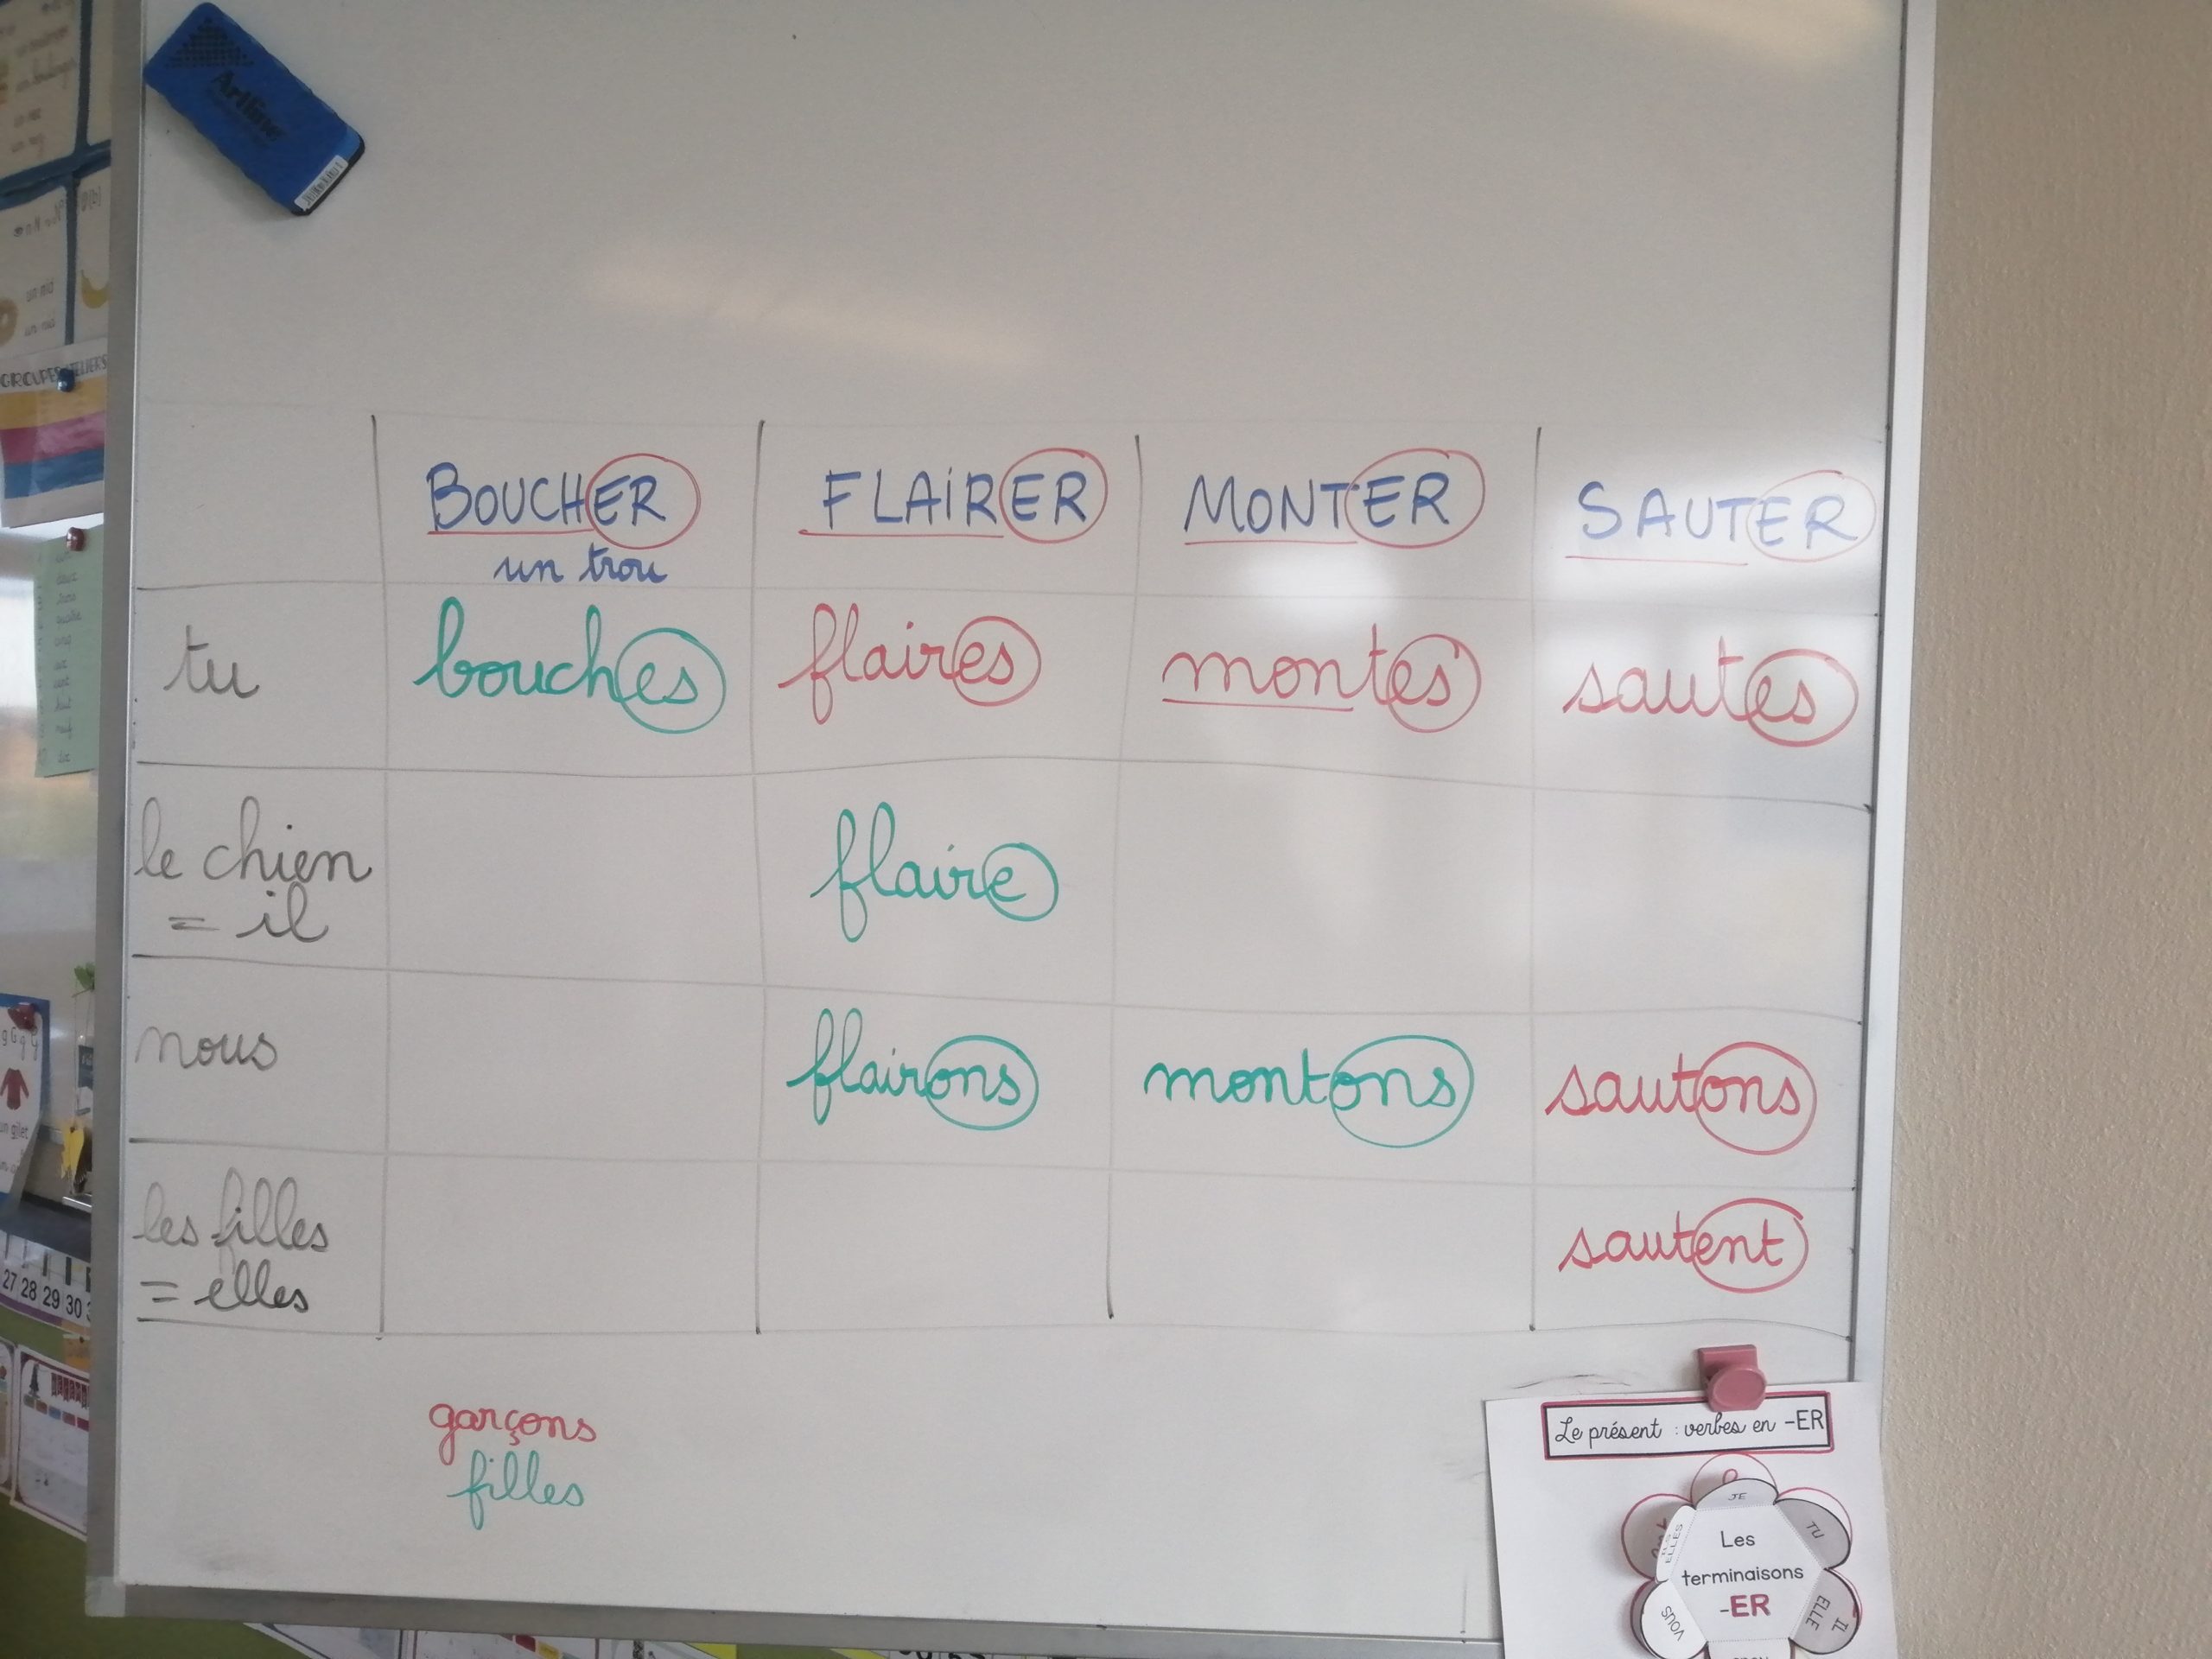 Artline
GROUPES ATELIERS
BOUCHER FLAIRER MONTER SAUTER
un trou
tu bouches flaires montes sautes
le chien flaire
= il
nous flairons montons sautons
les filles sautent
= elles
27 28 29 30
garçons
filles
Le présent : verbes en -ER
JE
TU
IL
ELLE
VOUS
ELLES
Les
terminaisons
-ER